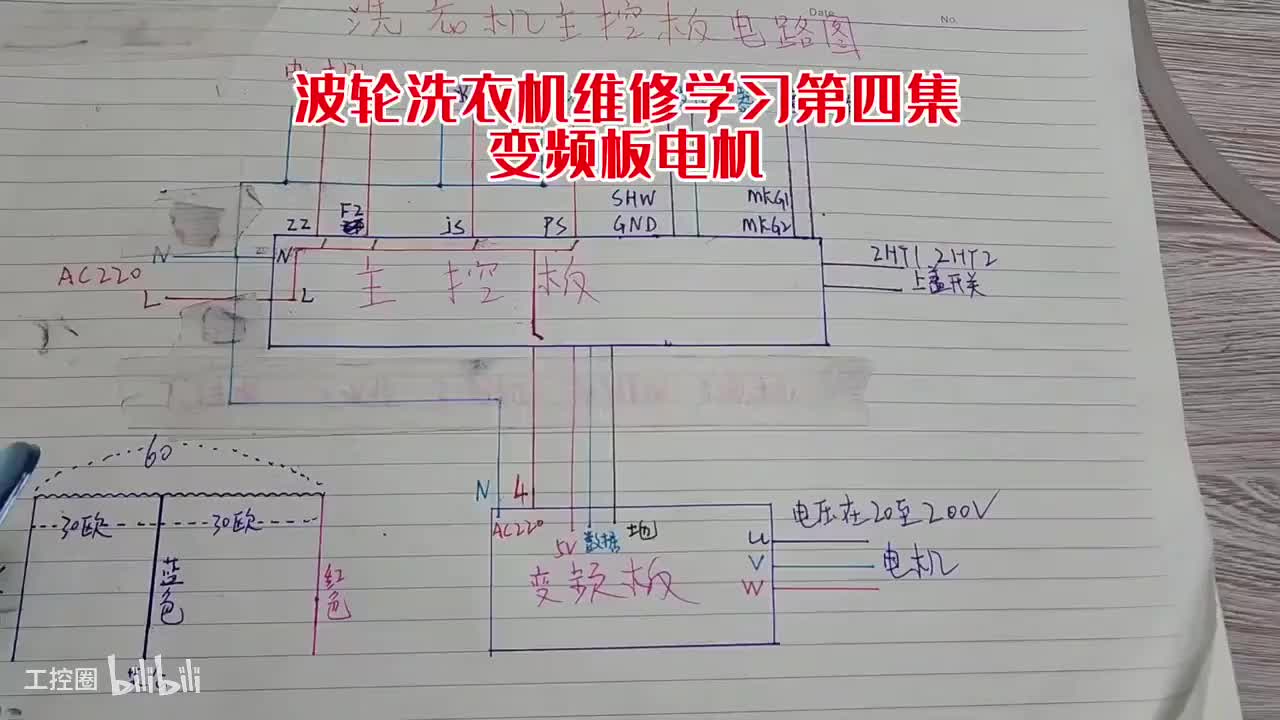 Date
No.
洗衣机主控板电路图
波轮洗衣机维修学习第四集
变频板电机
SHW
MKG1
ZZ
FZ
js
PS
GND
MKG2
N
N
AC220
L
L
主 控 板
2HT1 2HT2
上盖开关
60
30欧
30欧
蓝色
红色
N
AC220
5V
数据
地
变频板
U
V
W
电压在20至200V
电机
工控圈 bilibili